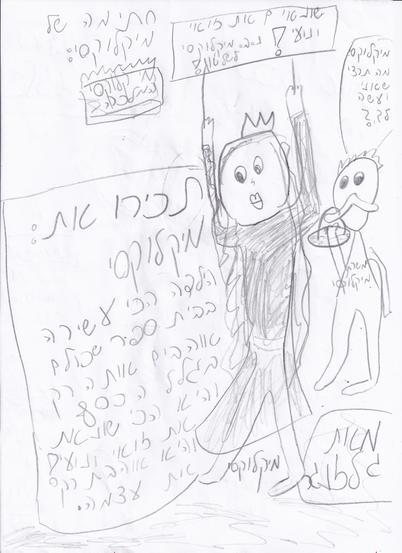 חתימה של
מיקלוקסי:
מיקלוקסי
המלכה!
שונאים את זואי
ונועי!
מיקלוקסי
לשלטון!
מיקלוקסי
מה תרצי
שאני
יעשה
לך?
תכירו את:
מיקלוקסי
הילדה הכי עשירה
בבית ספר שכולם
אוהבים אותה רק
בגלל הכסף
והיא הכי שונאת
את זואי ונועי
והיא אוהבת רק
את עצמה.
משרת
מיקלוקסי
מיקלוקסי
מאת